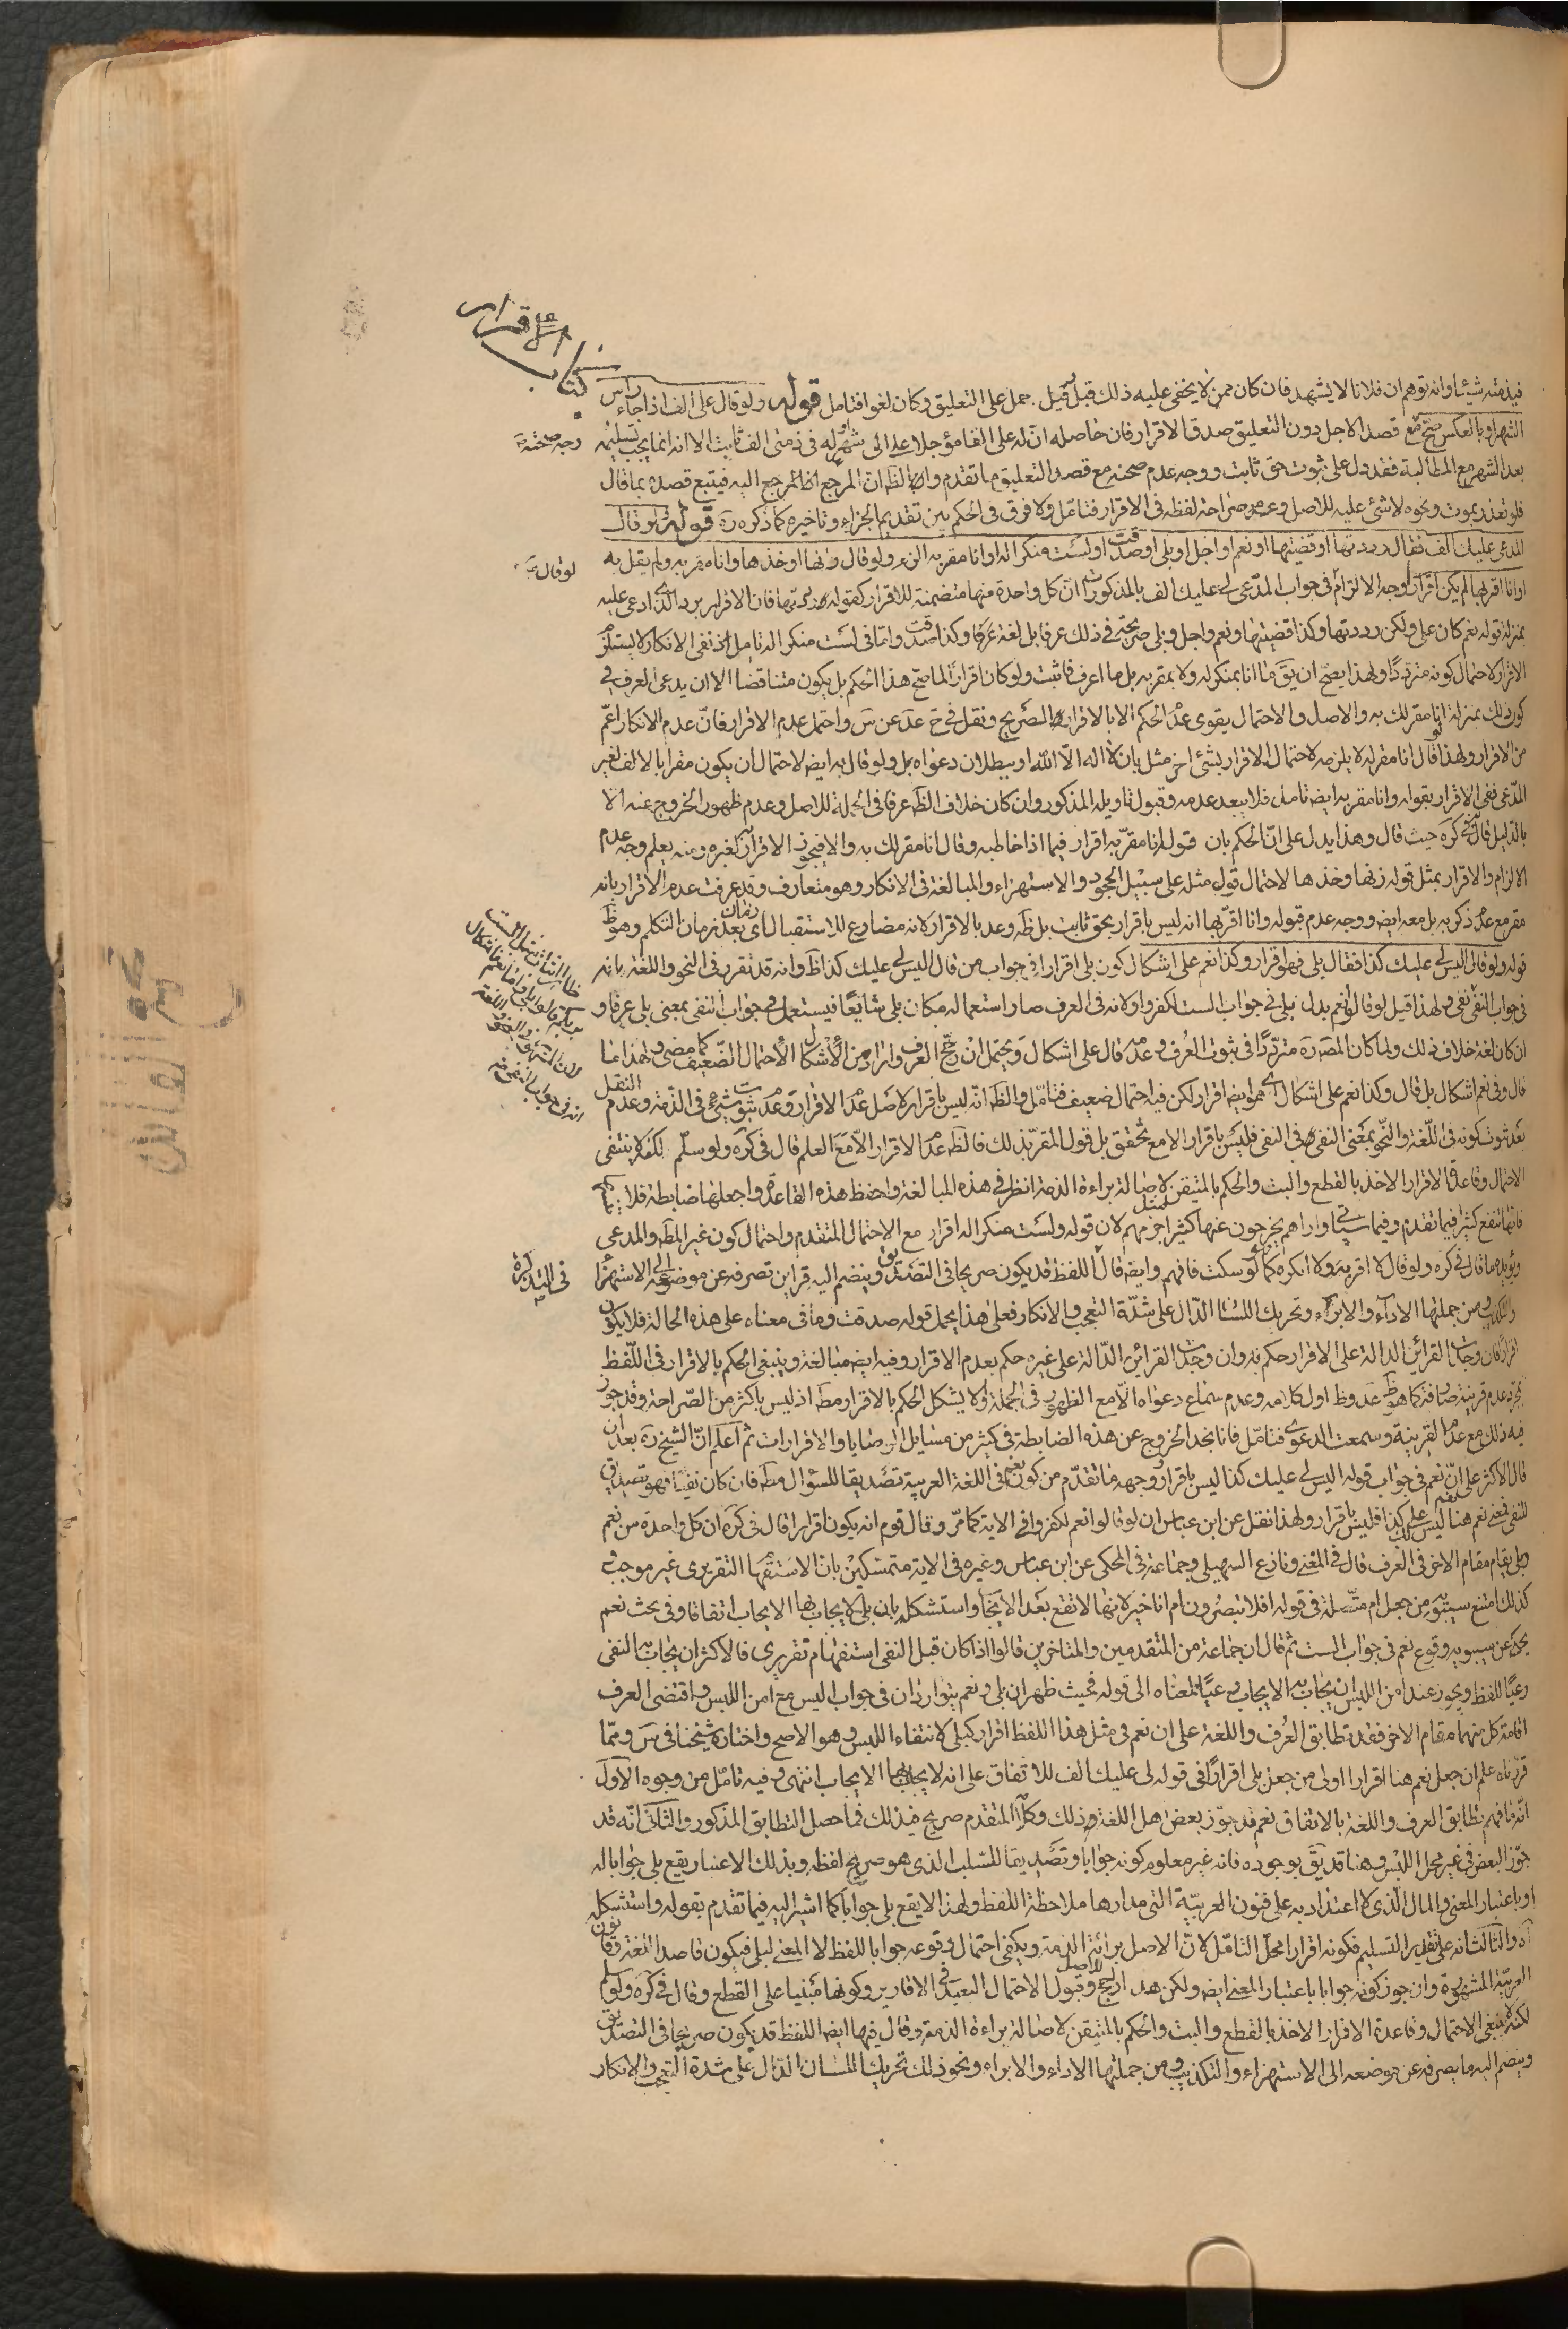 كتاب الاقرار
فيذمته شيئا وانه توهم ان فلانا لا يشهد فان كان ممن لا يخفى عليه ذلك قبل قيل حمل على التعليق وكان لغوا فتامل قوله ولو قال على الف اذا جاء راس
الشهر او بالعكس صح مع قصد الاجل دون التعليق صدق الاقرار فان حاصله ان له على الفا مؤجلا الى شهر له في ذمتى الف ثابت الا انه انما يجب تسليمه
بعد الشهر مع المطالبة فقد دل على ثبوت حق ثابت ووجه عدم صحته مع قصد التعليق ما تقدم والظ ان المرجع اليه فيتبع قصده بما قال
فلو تعذر بموت ونحوه لا شئ عليه للاصل وعدم صراحة لفظه فى الاقرار فتامل ولا فرق فى الحكم بين تقديم الجزاء وتاخيره كما ذكره ره قوله ولو قال
المدعى عليك الف فقال رددتها او قضيتها او نعم او اجل او بلى او صدقت او لست منكرا له او انا مقر به الزم ولو قال زنها او خذها او انا مقر به ولم يقل به
او انا اقر بها لم يكن اقرارا وجه الالزام فى جواب المدعى لى عليك الف بالمذكورات ان كل واحدة منها متضمنة للاقرار كقوله رددتها فان الاقرار برد الذى ادعى عليه
بمنزلة قوله نعم كان على ولكن رددتها وكذا قضيتها ونعم واجل وبلى صريحة فى ذلك عرفا بل لغة عرفا وكذا صدقت واما فى لست منكرا له تامل اذ نفى الانكار لا يستلزم
الاقرار لاحتمال كونه مترددا ولهذا يصح ان يق ما انا بمنكر له ولا بمقر به بل ما اعرف ثابت ولو كان اقرارا لما صح هذا الحكم بل يكون متناقضا الا ان يدعى العرف فى
كون ذلك بمنزلة انا مقر لك به والاصل والاحتمال يقوى عدم الحكم الا بالاقرار الصريح ونقل فى ح عد عن س واحتمل عدم الاقرار فان عدم الانكار اعم
من الاقرار ولهذا لو قال انا مقر له لا يلزمه لاحتمال الاقرار بشئ اخر مثل بان لا اله الا الله او ببطلان دعواه بل ولو قال به ايض لاحتمال ان يكون مقرا بالالف لغير
المدعى ففى الاقرار بقوله وانا مقر به ايض تامل فلا يبعد عدمه وقبول تاويله المذكور وان كان خلاف الظ عرفا فى الجملة للاصل وعدم ظهور الخروج عنه الا
بالدليل قال فى كره حيث قال وهذا يدل على ان الحكم بان قوله انا مقر به اقرار فيما اذا خاطبه وقال انا مقر لك به والا فيجوز الاقرار لغيره ومنه يعلم وجه عدم
الالزام والاقرار بمثل قوله زنها وخذها لاحتمال قول مثله على سبيل الجحود والاستهزاء والمبالغة فى الانكار وهو متعارف وقد عرفت عدم الاقرار بانه
مقر مع عدم ذكر به بل معه ايض ووجه عدم قبوله وانا اقر بها انه ليس باقرار بحق ثابت بل ظه وعد بالاقرار لانه مضارع للاستقبال اى زمان بعد زمان التكلم وهو ظ
قوله ولو قال اليس لى عليك كذا فقال بلى فهو اقرار وكذا نعم على اشكال كون بلى اقرارا فى جواب من قال اليس لى عليك كذا ظ وانه قد تقرر فى النحو واللغة بانه
فى جواب النفى نفى ولهذا قيل لو قالوا نعم بدل بلى فى جواب الست لكفروا ولانه فى العرف صار استعماله مكان بلى شايعا فيستعمل فى جواب النفى بمعنى بلى عرفا و
ان كان لغة خلاف ذلك ولما كان المص ره مترددا فى ثبوت العرف وعدمه قال على اشكال ويحتمل ان رجح العرف واراد من الاشكال الاحتمال الضعيف كما مضى ولهذا ما
قال وفى نعم اشكال بل قال وكذا نعم على اشكال اى هو ايض اقرار لكن فيه احتمال ضعيف فتامل والظ انه ليس باقرار لاصل عدم الاقرار وعدم ثبوت شئ فى الذمة وعدم النقل
بعد ثبوت كونه فى اللغة والنحو بمعنى النفى فى النفى فليس باقرار الا مع تحقق بل قول المقر بذلك فالظ عدم الاقرار الا مع العلم قال فى كره ولو سلم لكنه لا ينتفى
الاحتمال وقاعدة الاقرار الاخذ بالقطع والبت والحكم بالمتيقن لاصالة براءة الذمة انظر فى هذه المبالغة واحفظ هذه القاعدة واجعلها ضابطة فلا
فانها تنفع كثيرا فيما تقدم وفيما سياتى واراهم يخرجون عنها كثيرا مثل جزمهم لان قوله ولست منكرا له اقرار مع الاحتمال المتقدم واحتمال كون غير المط والمدعى
ويؤيده ما قال فى كره ولو قال لا اقر به ولا انكره كما لو سكت فافهم وايض قال اللفظ قد يكون صريحا فى التصديق وينضم اليه قراين تصرفه عن موضوعه الى الاستهزاء
والتكذيب ومن جملتها الاداء والابراء وتحريك اللسان الدال على شدة التعجب والانكار فعلى هذا يحمل قوله صدقت وما فى معناه على هذه الحالة فلا يكون
اقرارا فان وجدت القرائن الدالة على الاقرار حكم به وان وجدت القرائن الدالة على غيره حكم بعدم الاقرار وفيه ايض مبالغة وينبغى الحكم بالاقرار فى اللفظ
بمجرد عدم قرينة صارفة كما هو ظ عد وظ اول كلامه وعدم سماع دعواه الا مع الظهور فى الجملة ولا يشكل الحكم بالاقرار مط اذ ليس باكثر من الصراحة وقد جوز
فيه ذلك مع عدم القرينة وسمعت الدعوى فتامل فانا نجد الخروج عن هذه الضابطة فى كثير من مسايل الوصايا والاقرارات ثم اعلم ان الشيخ ره بعد ان
قال الاكثر على ان نعم فى جواب قوله اليس لى عليك كذا ليس باقرار ووجهه ما تقدم من كون نعم فى اللغة العربية تصديقا للسؤال مط فان كان نفيا فهو تصديق
للنفى فمعنى نعم هنا ليس لك على كذا فليس باقرار ولهذا نقل عن ابن عباس ان لو قالوا نعم لكفروا فى الاية كما مر وقال قوم انه يكون اقرارا قال فى كره ان كل واحدة من نعم
وبلى يقام مقام الاخر فى العرف قال فى المغنى ونازع السهيلى وجماعة فى المحكى عن ابن عباس وغيره فى الاية متمسكين بان الاستفهام التقريرى غير موجب و
كذلك امتنع سيبويه من جعل ام متصلة فى قوله افلا تبصرون ام انا خير لانها لا تقع بعد الايجاب واستشكل بان بلى لا يجاب بها الايجاب اتفاقا وفى بحث نعم
يحكى عن سيبويه وقوع نعم فى جواب الست ثم قال ان جماعة من المتقدمين والمتاخرين قالوا اذا كان قبل النفى استفهام تقريرى فالاكثر ان يجاب به النفى
رعيا للفظ ويجوز عند امن اللبس ان يجاب به الايجاب رعيا لمعناه الى قوله فحيث ظهر ان بلى ونعم يتواردان فى جواب اليس مع امن اللبس واقتضى العرف
اقامة كل منهما مقام الاخر فقد تطابق العرف واللغة على ان نعم فى مثل هذا اللفظ اقرار كبلى لانتفاء اللبس وهو الاصح واختاره شيخنا فى س ومما
قررناه علم ان جعل نعم هنا اقرارا اولى من جعل بلى اقرارا فى قوله لى عليك الف للاتفاق على انه لا يجاب بها الايجاب انتهى وفيه تامل من وجوه الاول
انه ما فهم تطابق العرف واللغة بالاتفاق نعم قد جوز بعض اهل اللغة ذلك وكلام المتقدم صريح فى ذلك فما حصل التطابق المذكور والثانى انه قد
جوز البعض فى غير محل اللبس وهنا قد يتحقق بوجوده فانه غير معلوم كونه جوابا وتصديقا للسلب الذى هو صريح لفظه وبذلك الاعتبار يقع بلى جوابا له
او باعتبار المعنى والمال الذى لا اعتداد به على فنون العربية التى مدارها ملاحظة اللفظ ولهذا لا يقع بلى جوابا كما اشير اليه فيما تقدم بقوله واستشكل
اه والثالث انه على تقدير التسليم فكونه اقرارا محل التامل لان الاصل براءة الذمة ويكفى احتمال وقوعه جوابا للفظ لا المعنى لبلى فيكون قاصدا اللغة وقانون
العربية المشهورة وان جوز كونه جوابا باعتبار المعنى ايض ولكن هذا ارجح للاصل وقبول الاحتمال البعيد فى الاقارير وكونها مبنيا على القطع وقال فى كره ولو سلم
لكنه لا ينفى الاحتمال وقاعدة الاقرار الاخذ بالقطع والبت والحكم بالمتيقن لاصالة براءة الذمة وقال فيها ايض اللفظ قد يكون صريحا فى التصديق
وينضم اليه ما يصرفه عن موضعه الى الاستهزاء والتكذيب ومن جملتها الاداء والابراء ونحو ذلك تحريك اللسان الدال على شدة التعجب والانكار
وجه صحته
لو قال
فى التذكرة